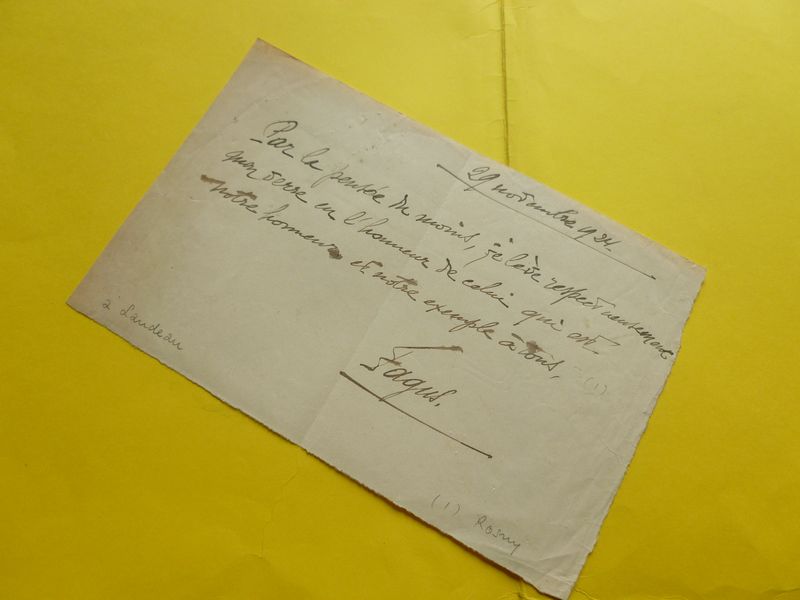 29 novembre 1924.
Par la pensée du moins, je lève respectueusement
mon verre en l'honneur de celui qui est
notre honneur et notre exemple à tous. (1)
Fagus.
à Landeau
(1) Rosny